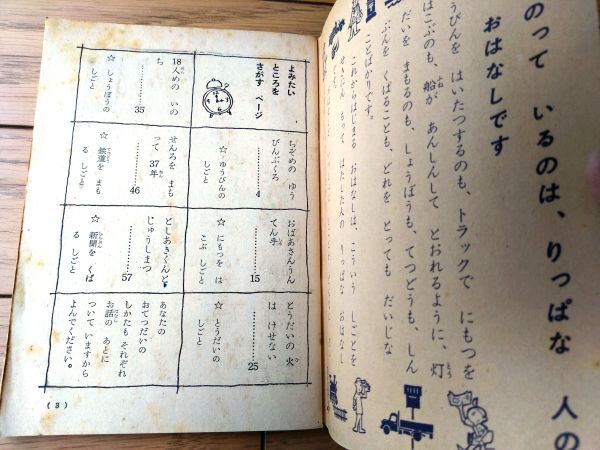 のって いるのは、りっぱな 人の
おはなしです
うびんを はいたつするのも、トラックで にもつを
はこぶのも、船が あんしんして とおれるように、灯
だいを まもるのも、しょうぼうも、てつどうも、しん
ぶんを くばることも、どれを とっても だいじな
ことばかりです。
これからはじまる おはなしは、こういう しごとを
せきにん もって はたした人の りっぱな おはなし
よみたい
ところを
さがす ページ
ちぞめの ゆう
びんぶくろ
…………4
☆ ゆうびんの
しごと
おばあさんうん
てん手
…………15
☆ にもつを は
こぶ しごと
とうだいの 火
は けせない
…………25
☆ とうだいの
しごと
18人めの いの
ち
…………35
☆ しょうぼうの
しごと
せんろを まも
って 37年
…………46
☆ 鉄道を まも
る しごと
としあきくんと
じゅうしまつ
…………57
☆ 新聞を くば
る しごと
あなたの
おてつだいの
しかたも それぞれ
お話の あとに
ついて いますから
よんでください。
( 3 )